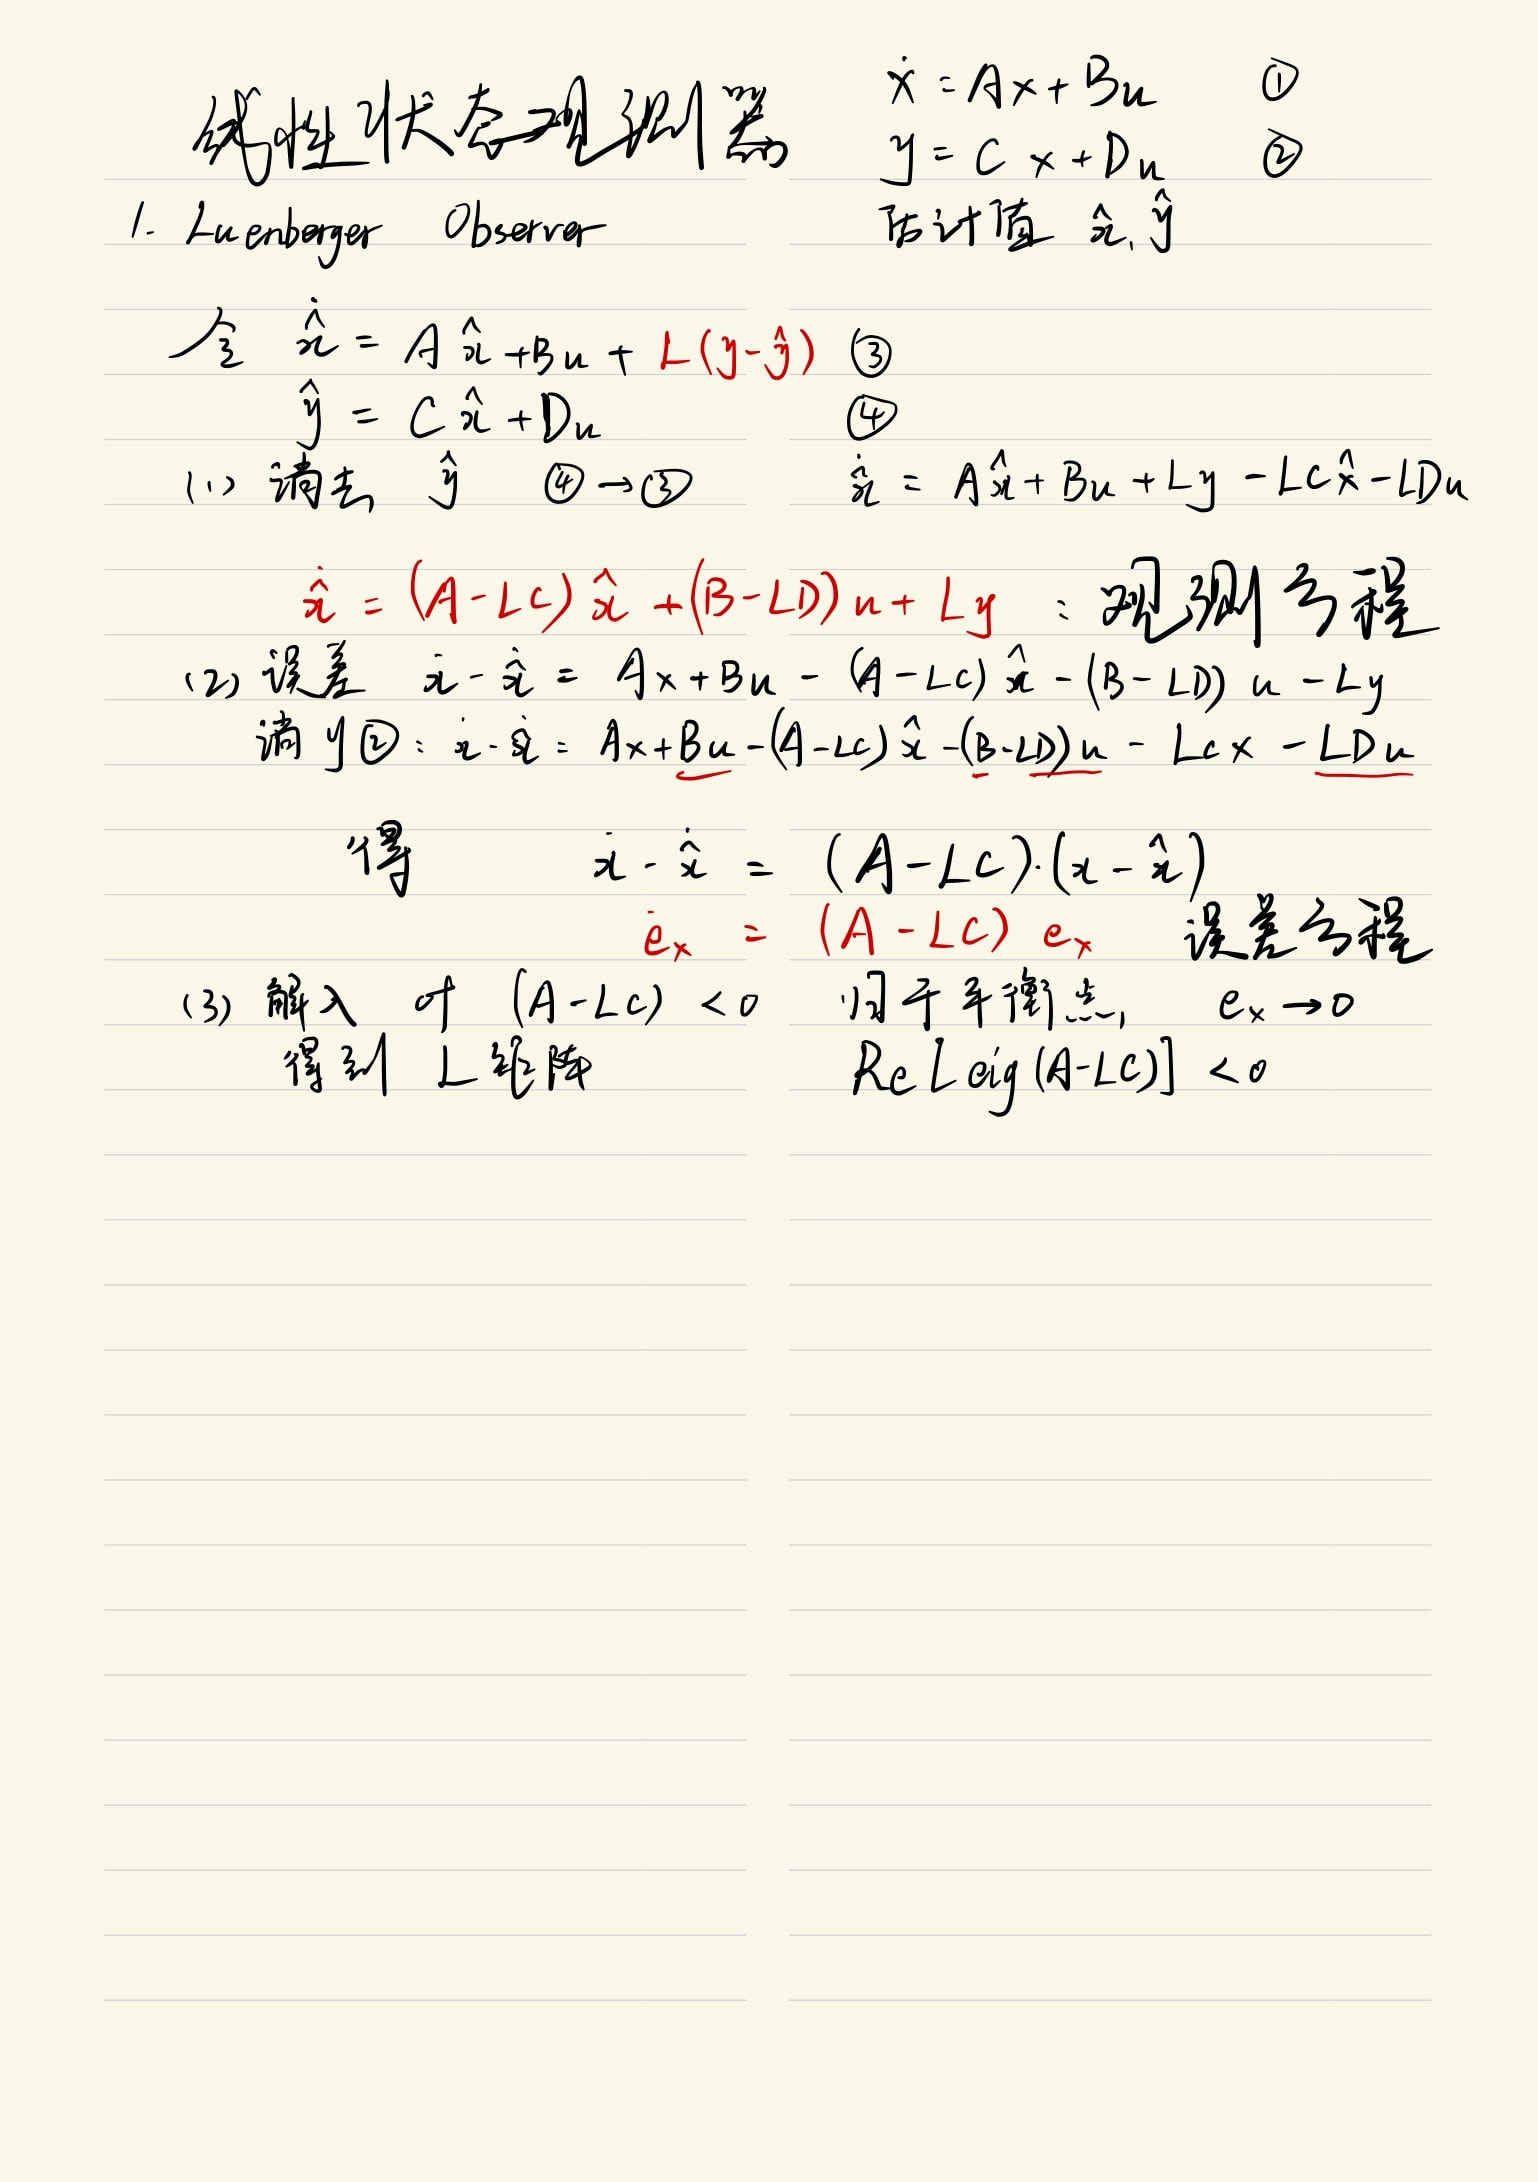 线性状态观测器
ẋ = Ax + Bu ①
y = Cx + Du ②
1. Luenberger Observer
估计值 x̂, ŷ
令 x̂̇ = Ax̂ + Bu + L(y-ŷ) ③
ŷ = Cx̂ + Du ④
(1) 消去 ŷ ④→③ x̂̇ = Ax̂ + Bu + Ly - LCx̂ - LDu
x̂̇ = (A-LC)x̂ + (B-LD)u + Ly : 观测方程
(2) 误差 ẋ - x̂̇ = Ax + Bu - (A-LC)x̂ - (B-LD)u - Ly
消y②: ẋ - x̂̇ = Ax + Bu - (A-LC)x̂ - (B-LD)u - LCx - LDu
得 ẋ - x̂̇ = (A-LC)·(x - x̂)
ėₓ = (A-LC) eₓ 误差方程
(3) 解入 (A-LC) < 0 归于平衡点, eₓ → 0
得到 L矩阵 Re[eig(A-LC)] < 0